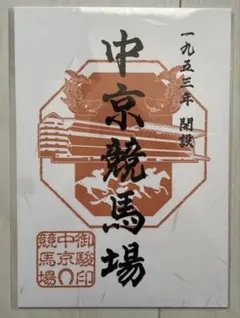 一九五三年 開設
中京競馬場
御駿印
中京
競馬場